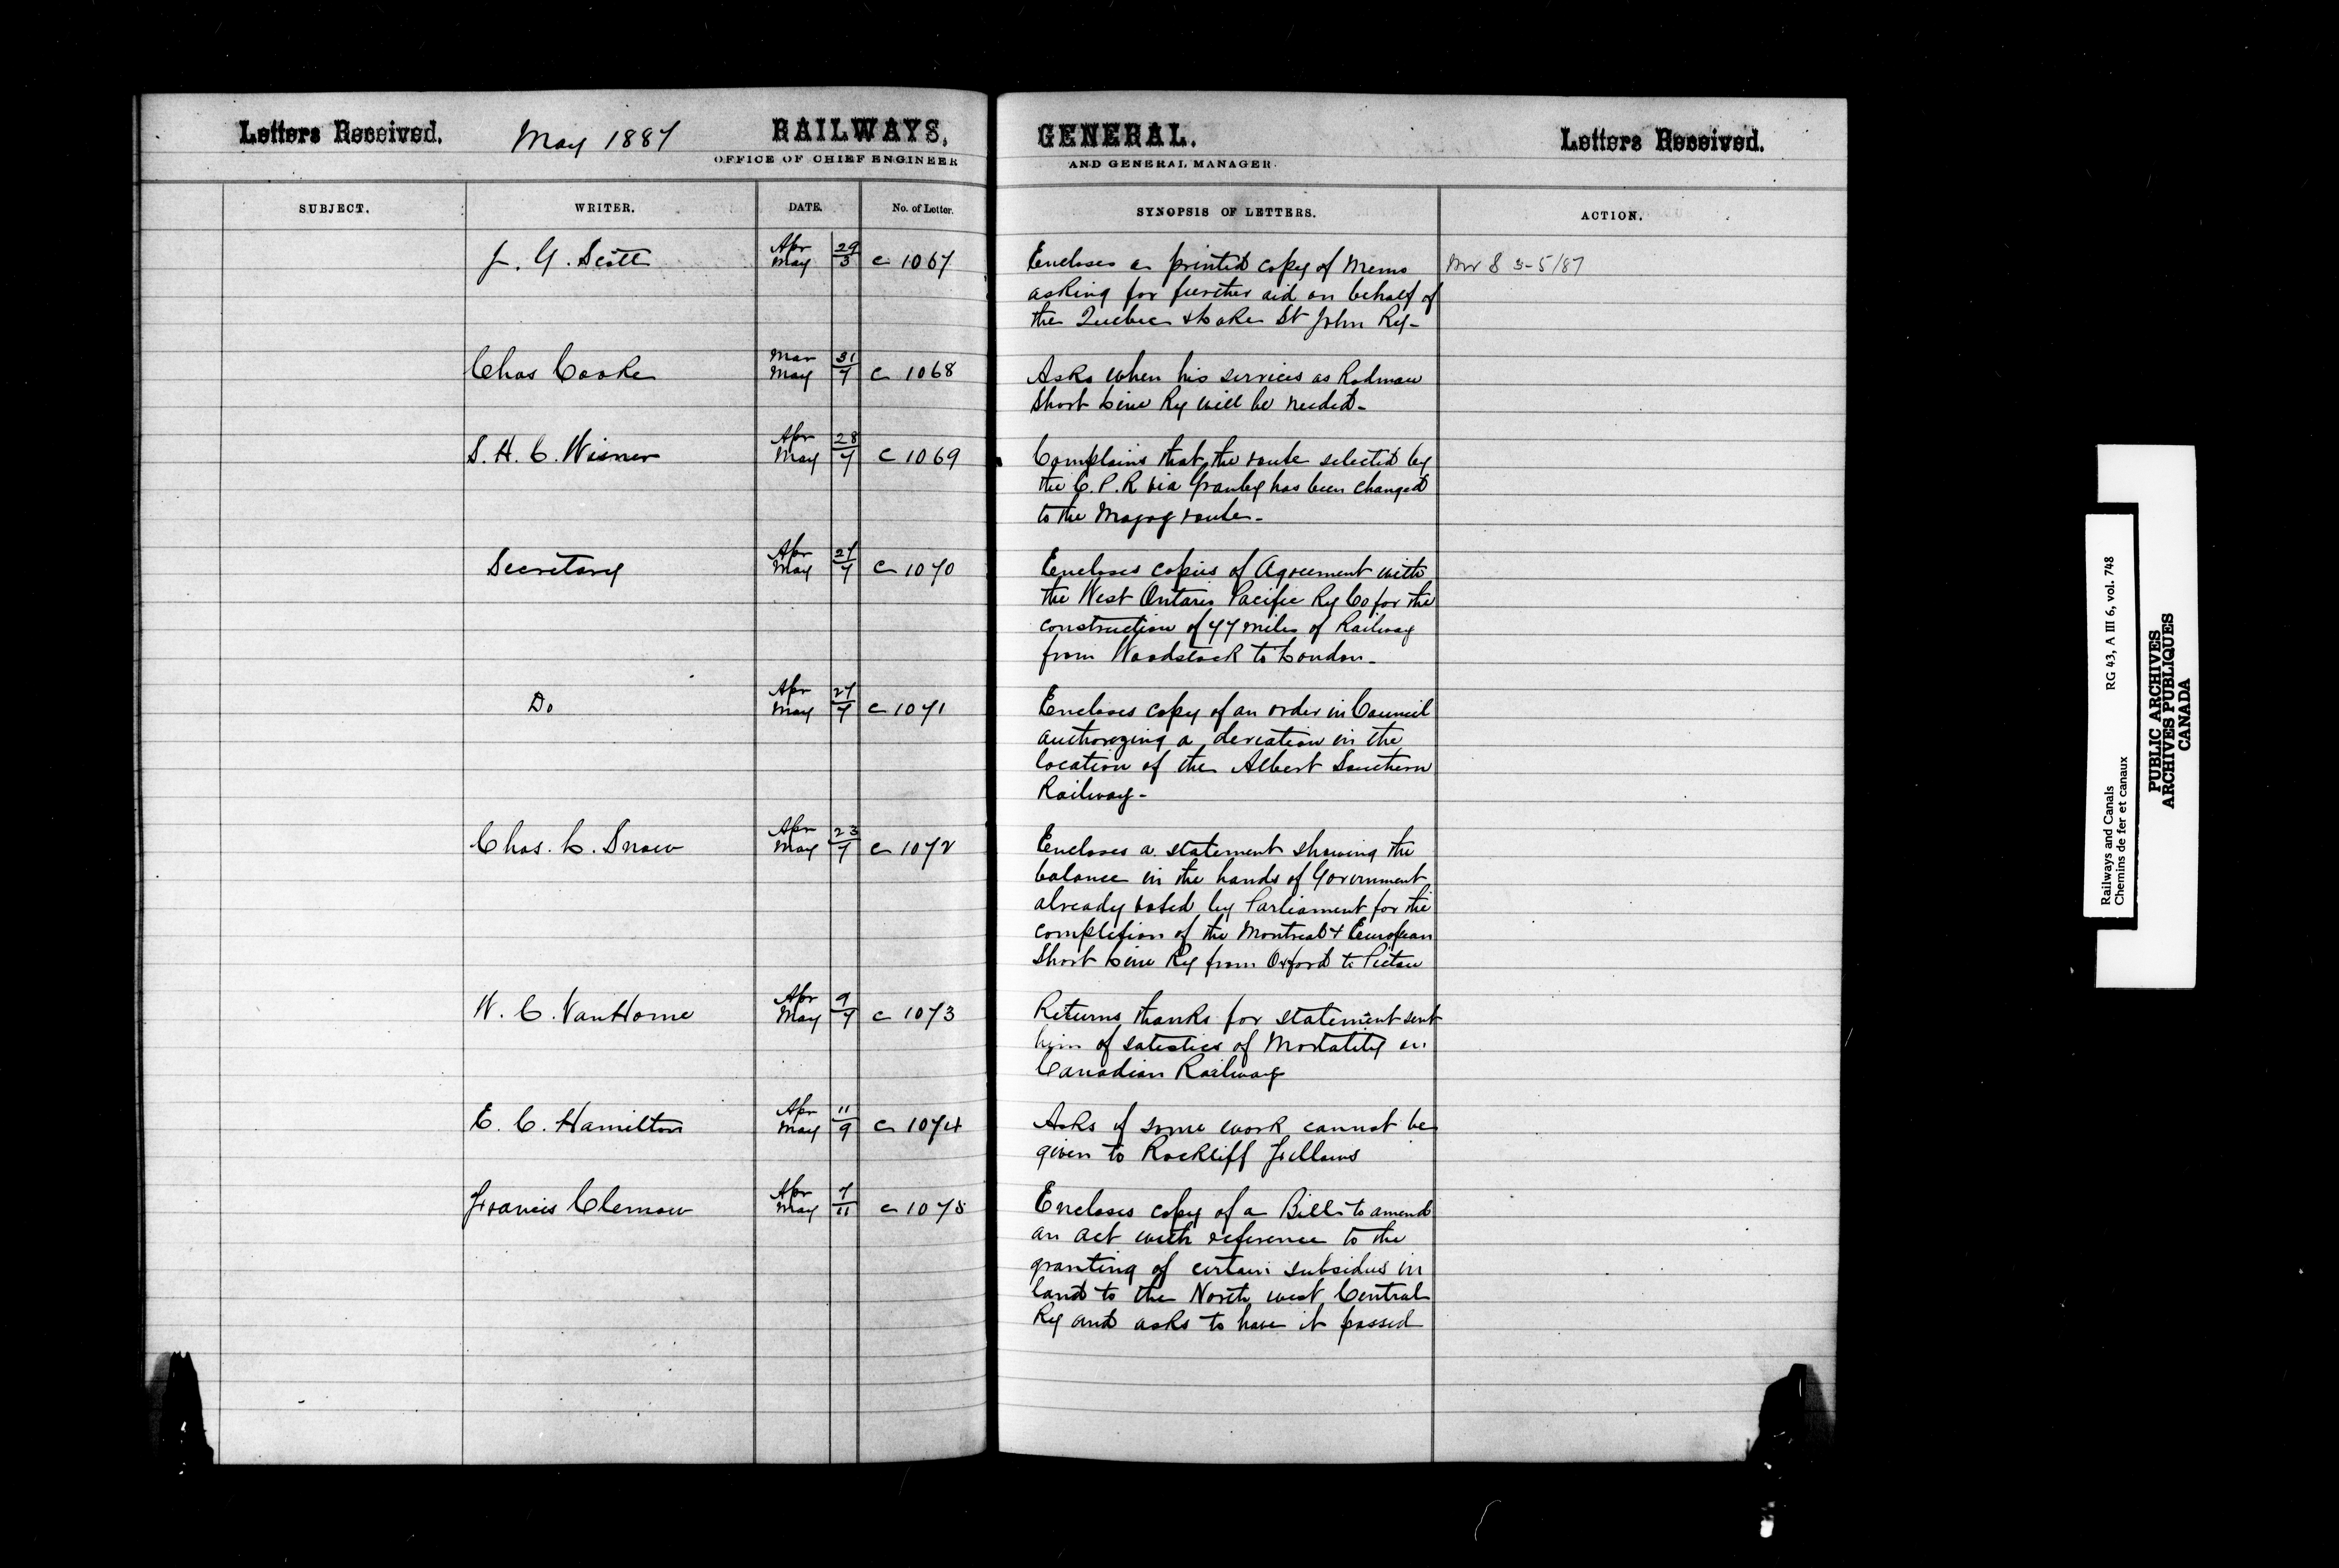 Letters Received. May 1887 RAILWAYS, GENERAL. Letters Received.
OFFICE OF CHIEF ENGINEER AND GENERAL MANAGER.
SUBJECT. WRITER. DATE. No. of Letter. SYNOPSIS OF LETTERS. ACTION.
J. G. Scott Apr 29 May 3 c 1067 Encloses a printed copy of Memo
asking for further aid on behalf of
the Quebec & Lake St John Ry-
3-5/87
Chas Cooke Mar 31 May 7 c 1068 Asks when his services as Rodman
Short Line Ry will be needed-
S. H. C. Wisner Apr 28 May 7 c 1069 Complains that the route selected by
the C. P. R via Granby has been changed
to the Magog route-
Secretary Apr 27 May 7 c 1070 Encloses copies of Agreement with
the West Ontario Pacific Ry Co for the
construction of 47 miles of Railway
from Woodstock to London-
Do Apr 27 May 7 c 1071 Encloses copy of an order in Council
authorizing a deviation in the
location of the Albert Southern
Railway-
Chas. E. Snow Apr 23 May 7 c 1072 Encloses a statement showing the
balance in the hands of Government
already voted by Parliament for the
completion of the Montreal & European
Short Line Ry from Oxford to Pictou
W. C. VanHorne Apr 9 May 7 c 1073 Returns thanks for statement sent
him of satistics of Mortality on
Canadian Railway
E. C. Hamilton Apr 11 May 9 c 1074 Asks if some work cannot be
given to Rockliff Fellows
Francis Clemow Apr 7 May 11 c 1075 Encloses copy of a Bill to amend
an act with reference to the
granting of certain subsidies in
land to the North west Central
Ry and asks to have it passed
Railways and Canals RG 43, A III 6, vol. 748
Chemins de fer et canaux
PUBLIC ARCHIVES
ARCHIVES PUBLIQUES
CANADA